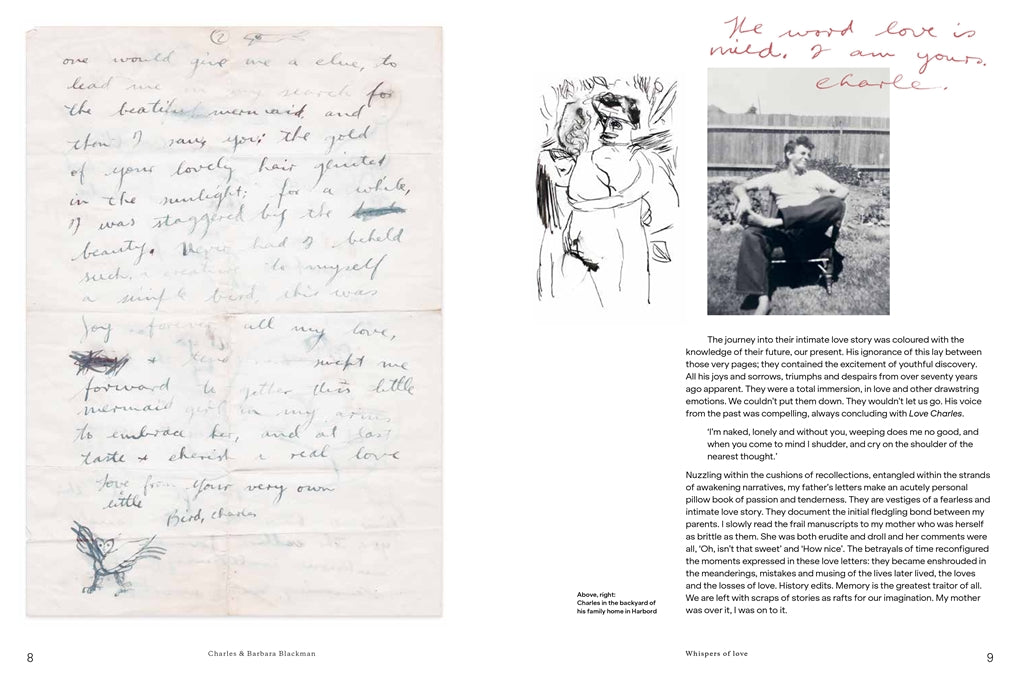 ②
one would give me a clue, to
lead me in my search for
the beatiful mermaid, and
then I saw you; the gold
of your lovely hair glinted
in the sunlight; for a while,
I was staggered by the
beauty. Never had I beheld
such, a creature, to myself
a simple bird, this was
Joy forever all my love,
& swept me
forward to gether this little
mermaid girl in my arms
to embrace her, and at last
taste & cherish a real love
love from your very own
little
Bird, charles
The word love is
mild. I am yours.
Charle.
The journey into their intimate love story was coloured with the
knowledge of their future, our present. His ignorance of this lay between
those very pages; they contained the excitement of youthful discovery.
All his joys and sorrows, triumphs and despairs from over seventy years
ago apparent. They were a total immersion, in love and other drawstring
emotions. We couldn't put them down. They wouldn't let us go. His voice
from the past was compelling, always concluding with Love Charles.
'I'm naked, lonely and without you, weeping does me no good, and
when you come to mind I shudder, and cry on the shoulder of the
nearest thought.'
Nuzzling within the cushions of recollections, entangled within the strands
of awakening narratives, my father's letters make an acutely personal
pillow book of passion and tenderness. They are vestiges of a fearless and
intimate love story. They document the initial fledgling bond between my
parents. I slowly read the frail manuscripts to my mother who was herself
as brittle as them. She was both erudite and droll and her comments were
all, 'Oh, isn't that sweet' and 'How nice'. The betrayals of time reconfigured
the moments expressed in these love letters: they became enshrouded in
the meanderings, mistakes and musing of the lives later lived, the loves
and the losses of love. History edits. Memory is the greatest traitor of all.
We are left with scraps of stories as rafts for our imagination. My mother
was over it, I was on to it.
Above, right:
Charles in the backyard of
his family home in Harbord
8
Charles & Barbara Blackman
Whispers of love
9